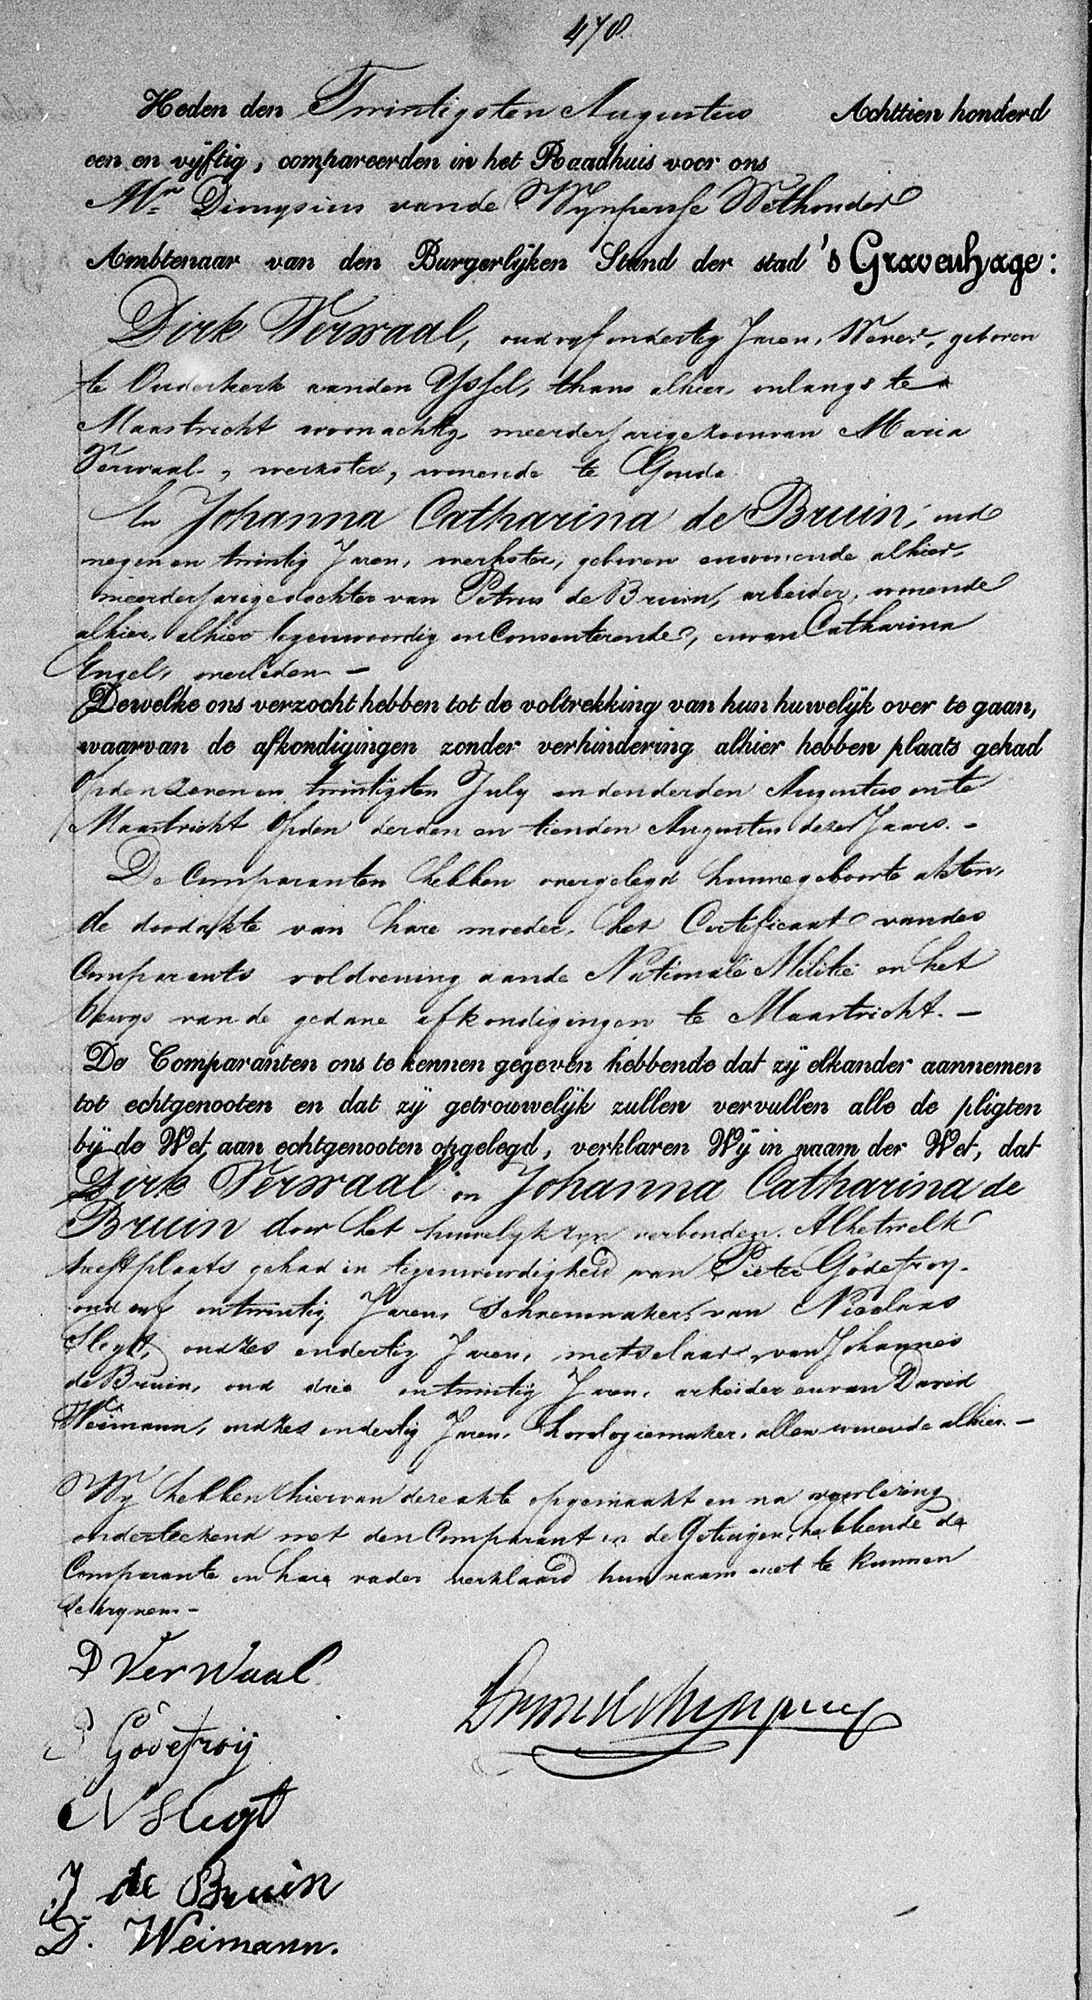 478.
Heden den Twintigsten Augustus Achttien honderd
een en vijftig, compareerden in het Raadhuis voor ons
Mr. Dionysius vande Wijnpersse Wethouder
Ambtenaar van den Burgerlijken Stand der stad 's Gravenhage:
Dirk Verwaal, oud vijf en dertig Jaren, Wever, geboren
te Ouderkerk aan den Yssel, thans alhier, onlangs te
Maastricht woonachtig, meerderjarige zoon van Maria
Verwaal, werkster, wonende te Gouda
En Johanna Catharina de Bruin, oud
negen en twintig Jaren, werkster, geboren en wonende alhier,
meerderjarige dochter van Petrus de Bruin, arbeider, wonende
alhier, alhier tegenwoordig en Consenterende, en van Catharina
Engel, overleden –
Dewelke ons verzocht hebben tot de voltrekking van hun huwelijk over te gaan,
waarvan de afkondigingen zonder verhindering alhier hebben plaats gehad
Op den zeven en twintigsten July en den derden Augustus en te
Maastricht Op den derden en tienden Augustus dezes Jaars. –
De Comparanten hebben overgelegd hunne geboorte akten,
de doodakte van hare moeder, het Certificaat van des
Comparants voldoening aan de Nationale Militie en het
bewys van de gedane afkondigingen te Maastricht. –
De Comparanten ons te kennen gegeven hebbende dat zij elkander aannemen
tot echtgenooten en dat zij getrouwelijk zullen vervullen alle de pligten
bij de Wet aan echtgenooten opgelegd, verklaren Wij in naam der Wet, dat
Dirk Verwaal en Johanna Catharina de
Bruin door het huwelyk zyn verbonden. Alhetwelk
heeft plaats gehad in tegenwoordigheid van Pieter Godefroy,
oud en twintig Jaren, Schoenmaker, van Nicolaas
Slegt, oud zes en dertig Jaren, metselaar, van Johannes
de Bruin, oud drie en twintig Jaren, arbeider en van David
Weimann, oud zes en dertig Jaren, horologiemaker, allen wonende alhier. –
Wy hebben hiervan deze akte opgemaakt en na voorlezing
onderteekend met den Comparant en de Getuigen, hebbende de
Comparante en hare vader verklaard hun naam niet te kunnen
schryven –
D VerWaal
P Godefroij
N Slegt
J de Bruin
D. Weimann.